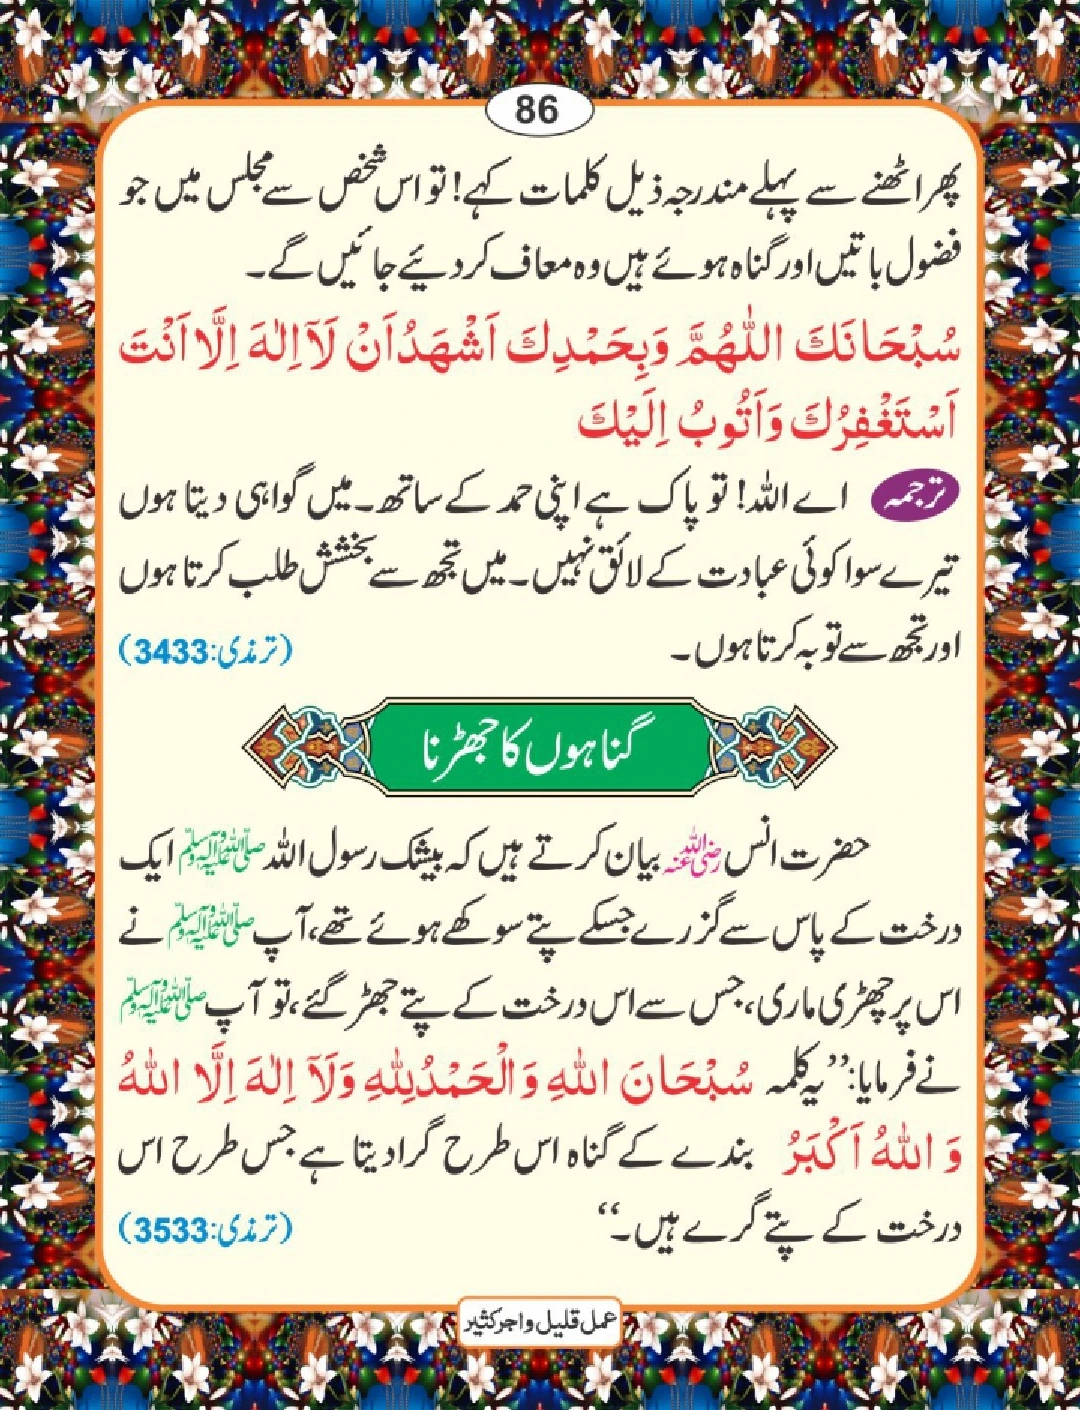 86
پھر اٹھنے سے پہلے مندرجہ ذیل کلمات کہے! تو اس شخص سے مجلس میں جو
فضول باتیں اور گناہ ہوئے ہیں وہ معاف کر دیئے جائیں گے۔
سُبْحَانَكَ اللّٰهُمَّ وَبِحَمْدِكَ اَشْهَدُ اَنْ لَآ اِلٰهَ اِلَّا اَنْتَ
اَسْتَغْفِرُكَ وَاَتُوبُ اِلَيْكَ
ترجمہ اے اللہ! تو پاک ہے اپنی حمد کے ساتھ۔ میں گواہی دیتا ہوں
تیرے سوا کوئی عبادت کے لائق نہیں۔ میں تجھ سے بخشش طلب کرتا ہوں
اور تجھ سے توبہ کرتا ہوں۔ (ترمذی:3433)
گناہوں کا جھڑنا
حضرت انس رضی اللہ عنہ بیان کرتے ہیں کہ بیشک رسول اللہ صلی اللہ علیہ وآلہ وسلم ایک
درخت کے پاس سے گزرے جسکے پتے سوکھے ہوئے تھے، آپ صلی اللہ علیہ وآلہ وسلم نے
اس پر چھڑی ماری، جس سے اس درخت کے پتے جھڑ گئے، تو آپ صلی اللہ علیہ وآلہ وسلم
نے فرمایا: ”یہ کلمہ سُبْحَانَ اللهِ وَالْحَمْدُ لِلّٰهِ وَلَآ اِلٰهَ اِلَّا اللهُ
وَ اللهُ اَكْبَرُ بندے کے گناہ اس طرح گرا دیتا ہے جس طرح اس
درخت کے پتے گرے ہیں۔“ (ترمذی:3533)
عمل قلیل و اجر کثیر